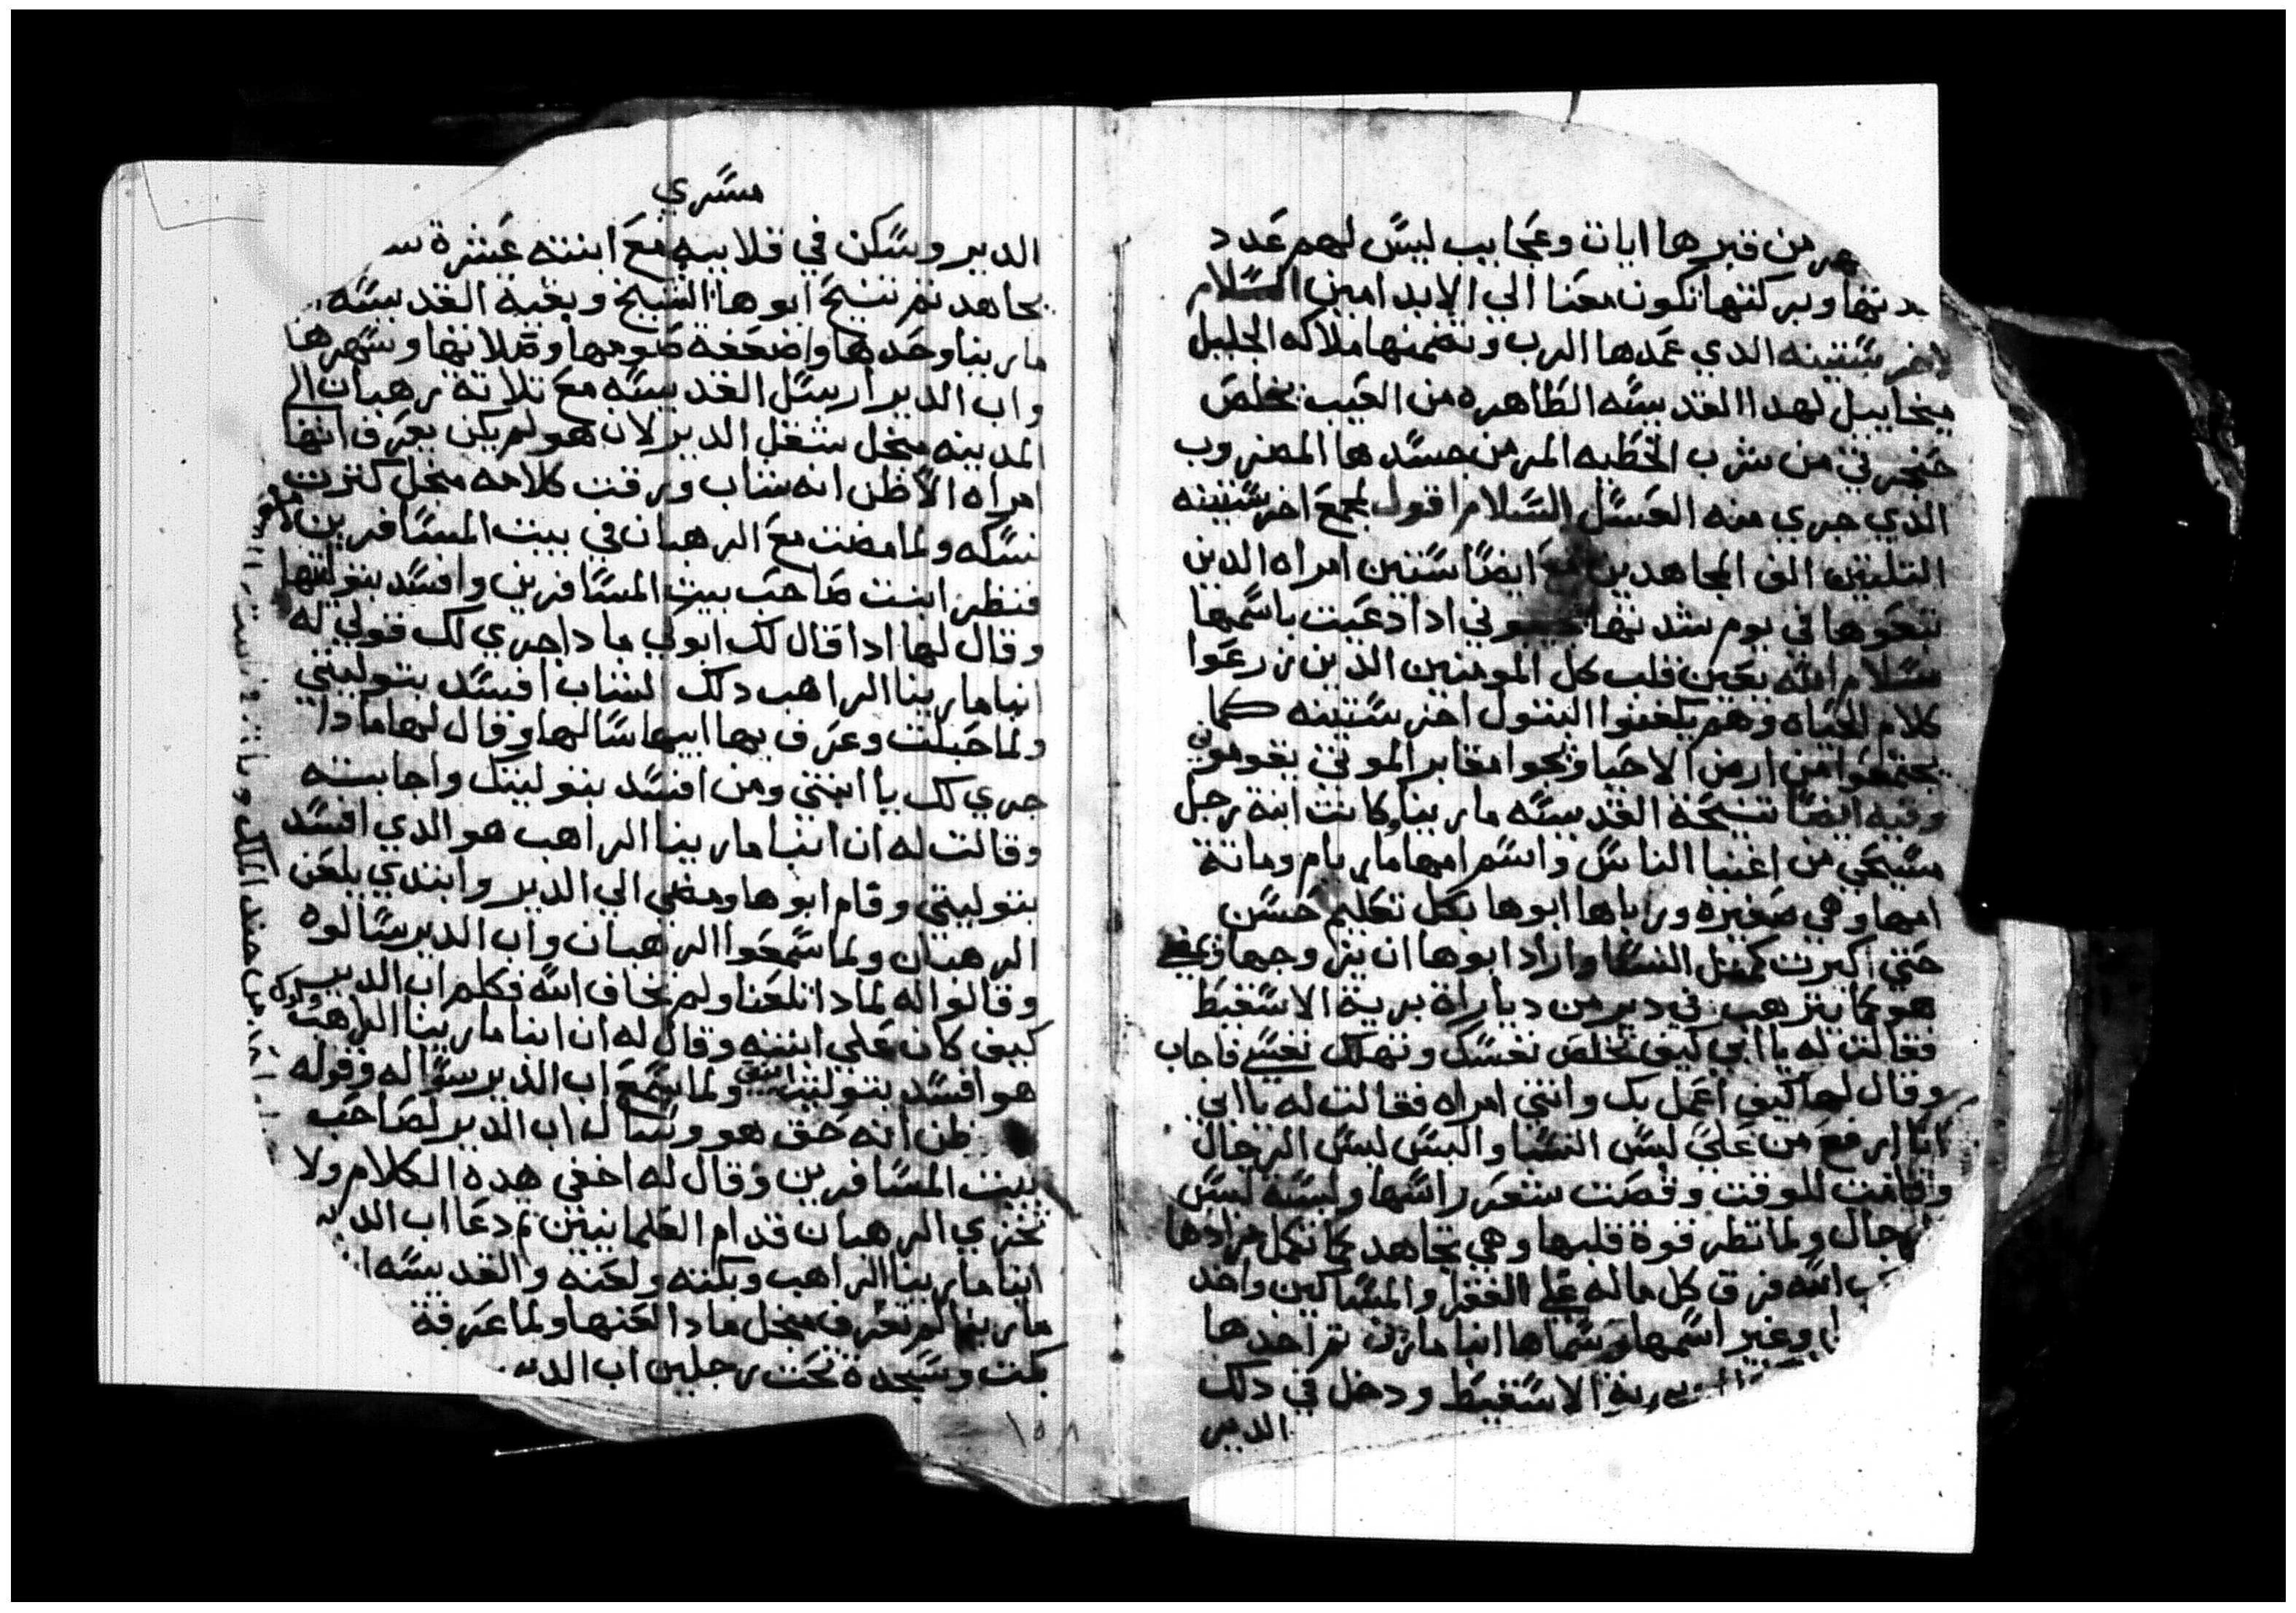 من قبرها ايات وعجايب ليس لهم عدد
وبركتها تكون معنا الي الابد امين السلام
لاخرسسينه الدي عمدها الرب وتضمنها ملاكه الجليل
ميخاييل لهدا القديسه الطاهره من العيب تخلص
من شرب الخطيه المر من جسدها المضروب
الذي جري منه العسل السلام اقول لجمع اخرسسينه
التليتين الف المجاهدين ايضا ستين امراه الدين
تبعوها في يوم شدتها ادا دعيت باسمها
سلام الله يعين قلب كل المومنين الدين زرعوا
كلام الحياه وهم يلعنوا البتول اخرسسينه كما
يجتمعوا من ارض الاحيا ونحوا مقابر الموتي يقومون
وفيه ايضا تنيحة القديسه مارينا وكانت ابنة رجل
مسيحي من اغنيا الناس واسم امها ماريام وماتة
امها وهي صغيره وراباها ابوها بكل تعليم حسن
حتي اكبرت كمثل النسا واراد ابوها ان يزوجها ويمضي
هو كما يترهب في دير من دياراة برية الاسقيط
فقالت له يا ابي كيف تخلص نفسك وتهلك نفسي فاجاب
وقال لها كيف اعمل بك وانتي امراه فقالت له يا ابي
انا ارفع من علي لبس النسا والبس لبس الرجال
وقامت للوقت وقصت شعر راسها ولبسة لبس
الرجال ولما نظر قوة قلبها وهي تجاهد كما تكمل مرادها
الله فرق كل ماله علي الفقرا والمساكين واخد
وغير اسمها وسماها ابنا مارينا تم اخدها
برية الاسقيط ودخل في دلك
الدير
مسري
الدير وسكن في قلاييه مع ابنته عشرة
يجاهد تم تنيح ابوها الشيخ وبقية القديسه
مارينا وحدها واضعفة صومها وصلاتها وسهرها
واب الدير ارسل القديسه مع تلاتة رهبان الي
المدينه منجل شغل الدير لان هو لم يكن يعرف انها
امراه الا ظن انه شاب ورقت كلامه منجل كترت
نسكه ولما مضت مع الرهبان في بيت المسافرين
فنظر ابنت صاحب بيت المسافرين وافسد بتوليتها
وقال لها ادا قال لك ابوكي مادا جري لك قولي له
ابنا مارينا الراهب دلك الشاب افسد بتوليتي
ولما حبلت وعرف بها ابيها سالها وقال لها مادا
جري لك يا ابنتي ومن افسد بتوليتك واجابته
وقالت له ان ابنا مارينا الراهب هو الدي افسد
بتوليتي وقام ابوها ومضي الي الدير وابتدي يلعن
الرهبان ولما سمعوا الرهبان واب الدير سالوه
وقالوا له لمادا تلعنا ولم تخاف الله فكلم اب الدير
كيف كان علي ابنته وقال له ان ابنا مارينا الراهب
هو افسد بتوليت ابنتي ولما سمع اب الدير سواله وقوله
ظن انه حق هو وسال اب الدير لصاحب
بيت المسافرين وقال له اخفي هدة الكلام ولا
تخزي الرهبان قدام العلمانيين تم دعا اب الدير
ابنا مارينا الراهب وبكته ولعنه والقديسه
مارينا لم تعرف منجل مادا لعنها ولما عرفة
بكت وسجدة تحت رجلين اب الدير
١٥٨